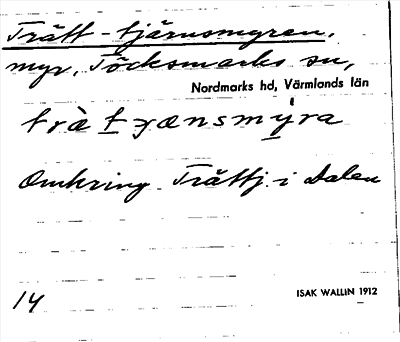 Trätt-tjärnsmyren,
myr, Töcksmarks sn,
Nordmarks hd, Värmlands län
tràt̲ɟænsmy̲ra
Omkring Trättj. i Dalen
14
ISAK WALLIN 1912